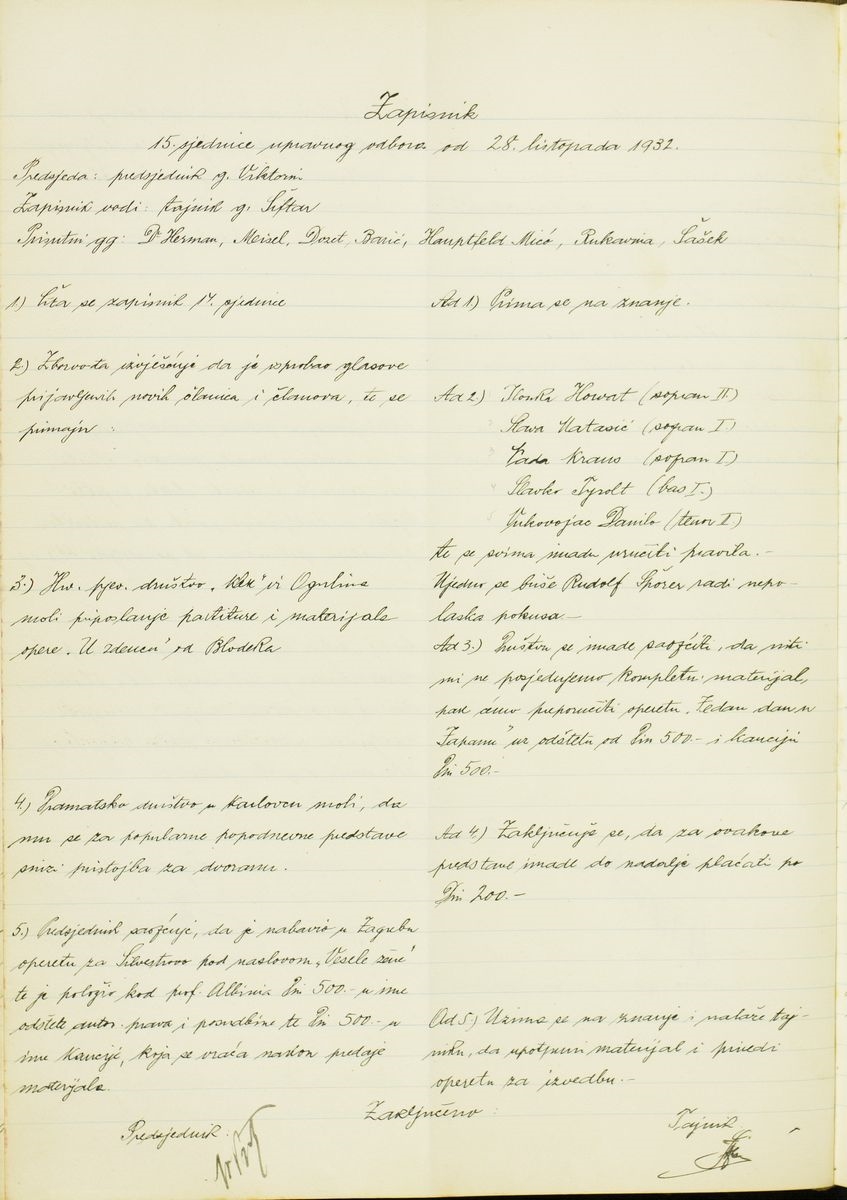 Zapisnik
15. sjednice upravnog odbora od 28. listopada 1932.
Predsjeda: predsjednik g. Viktorin
Zapisnik vodi: tajnik g. Šiftar
Prisutni gg: Dr Herman, Meisel, Dozet, Barić, Hauptfeld Mićo, Rukavina, Šašek
1) Čita se zapisnik 14. sjednice
2.) Zborovođa izvješćuje da je isprobao glasove
prijavljenih novih članica i članova, te se
primaju:
3.) Hrv. pjev. društvo „Klek" iz Ogulina
moli priposlanje partiture i materijala
opere „U zdencu" od Blodeka
4.) Dramatsko društvo u Karlovcu moli, da
mu se za popularne popodnevne predstave
snizi pristojba za dvoranu.
5.) Predsjednik saopćuje, da je nabavio u Zagrebu
operetu za Silvestrovo pod naslovom „Vesele žene"
te je položio kod prof. Albinia Din 500.- u ime
odštete autor. prava i posudbine te Din 500.- u
ime kaucije, koja se vraća nakon predaje
materijala.
Ad 1) Prima se na znanje.
Ad 2) Ilonka Howat (sopran II.)
Slava Matasić (sopran I.)
Vada Kraus (sopran I)
Slavko Tyrolt (bas I.)
Vukovojac Danilo (tenor I.)
te se svima imadu uručiti pravila. -
Ujedno se briše Rudolf Špörer radi nepo-
laska pokusa -
Ad 3.) Društvu se imade saopćiti, da niti
mi ne posjedujemo kompletni materijal,
pak ćemo preporučiti operetu „Jedan dan u
Japanu" uz odštetu od Din 500.- i kauciju
Din 500.-
Ad 4) Zaključuje se, da za ovakove
predstave imade do nadalje plaćati po
Din 200.-
Ad 5.) Uzima se na znanje i nalaže taj-
niku, da upotpuni materijal i priredi
operetu za izvedbu. -
Zaključeno:
Predsjednik:
Tajnik